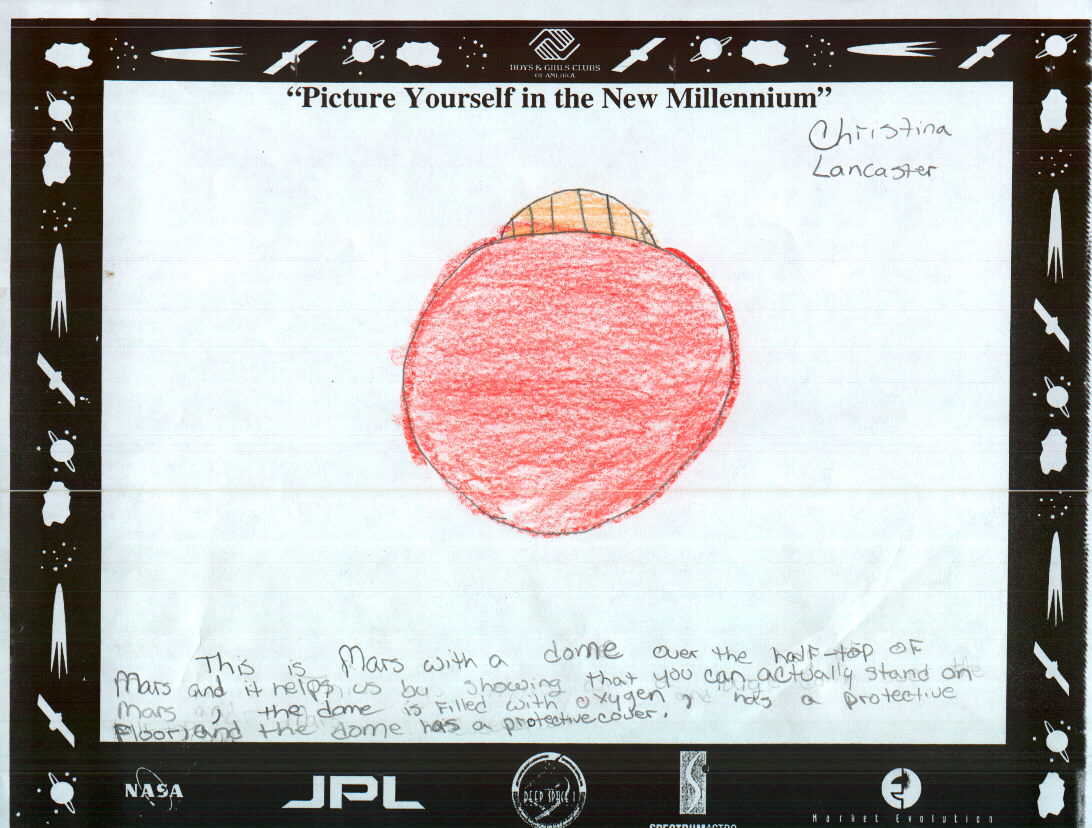 BOYS & GIRLS CLUBS
OF AMERICA
“Picture Yourself in the New Millennium”
Christina
Lancaster
This is Mars with a dome over the half-top OF
Mars and it helps us by showing that you can actually stand on
Mars , the dome is Filled with oxygen , has a protective
Floor, and the dome has a protective cover.
NASA
JPL
DEEP SPACE 1
SPECTRUMASTRO
Market Evolution